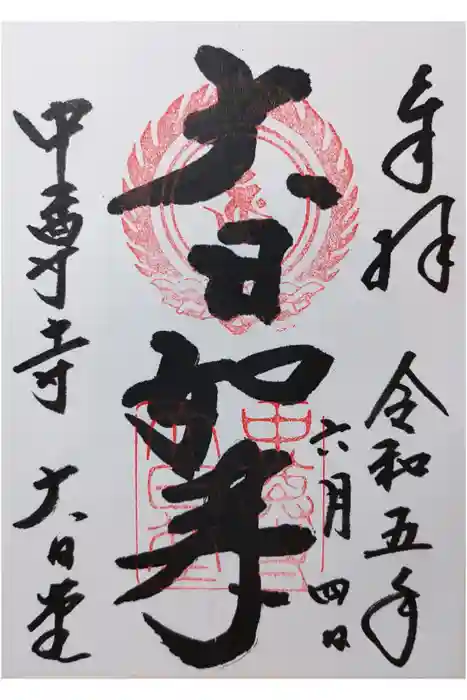 奉拝
令和五年
六月四日
大日如来
中尊寺 大日堂